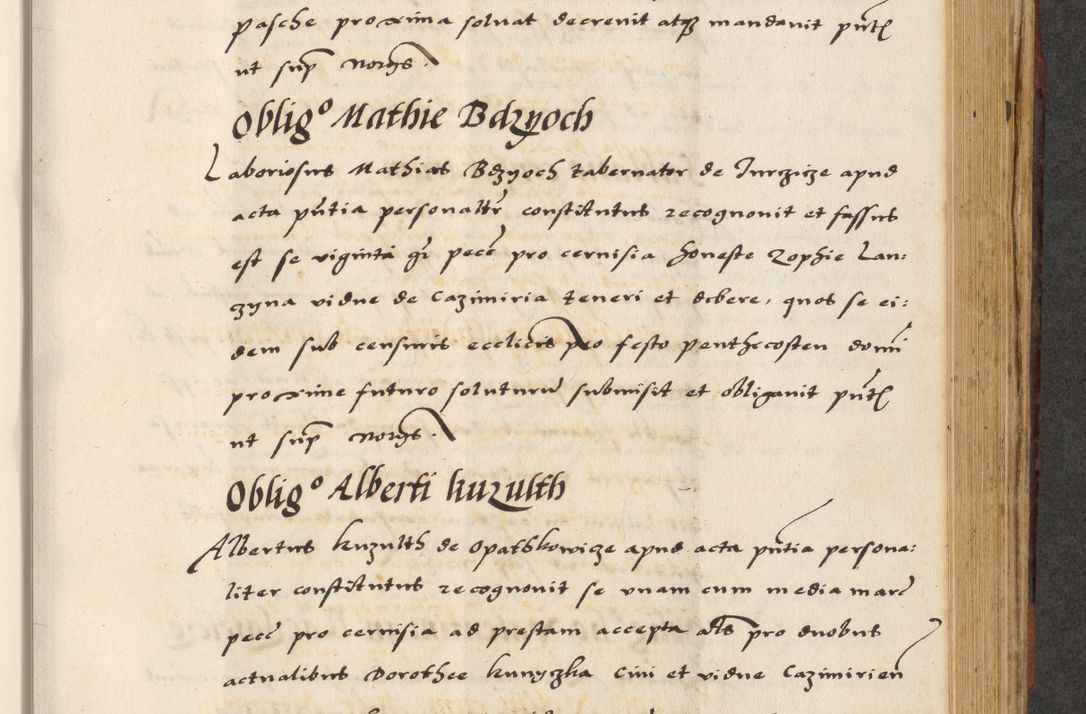 pasche proxima solvat decrevit atqz mandavit pnt
ut sup nors.
Obligo Mathie Bdzyoch
Laboriosus Mathias Bdzyoch tabernator de Jurczicze apud
acta pntia personalr constitutus recognovit et fassus
est se viginti gr pecc pro cervisia honeste Zophie Lan:
zyna vidue de Cazimiria teneri et debere, quos se ei:
dem sub censuris ecclicis pro festo penthecosten domi
proxime futuro soluturu submisit et obligavit pnt
ut sup nors.
Obligo Alberti kuzulth
Albertus kuzulth de Opathkowicze apud acta pntia persona:
liter constitutus recognovit se unam cum media marc
pecc pro cervisia ad prestam accepta als pro duobus
actualibus Dorothee kunyczka Civi et vidue Cazimirien